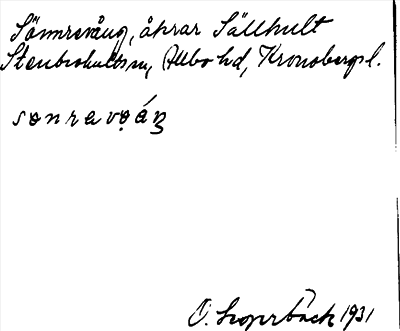 Sönnrevång, åkrar Sällhult
Stenbrohults sn, Allbo hd, Kronobergs l.
sɵnravọáŋ
O. 1931